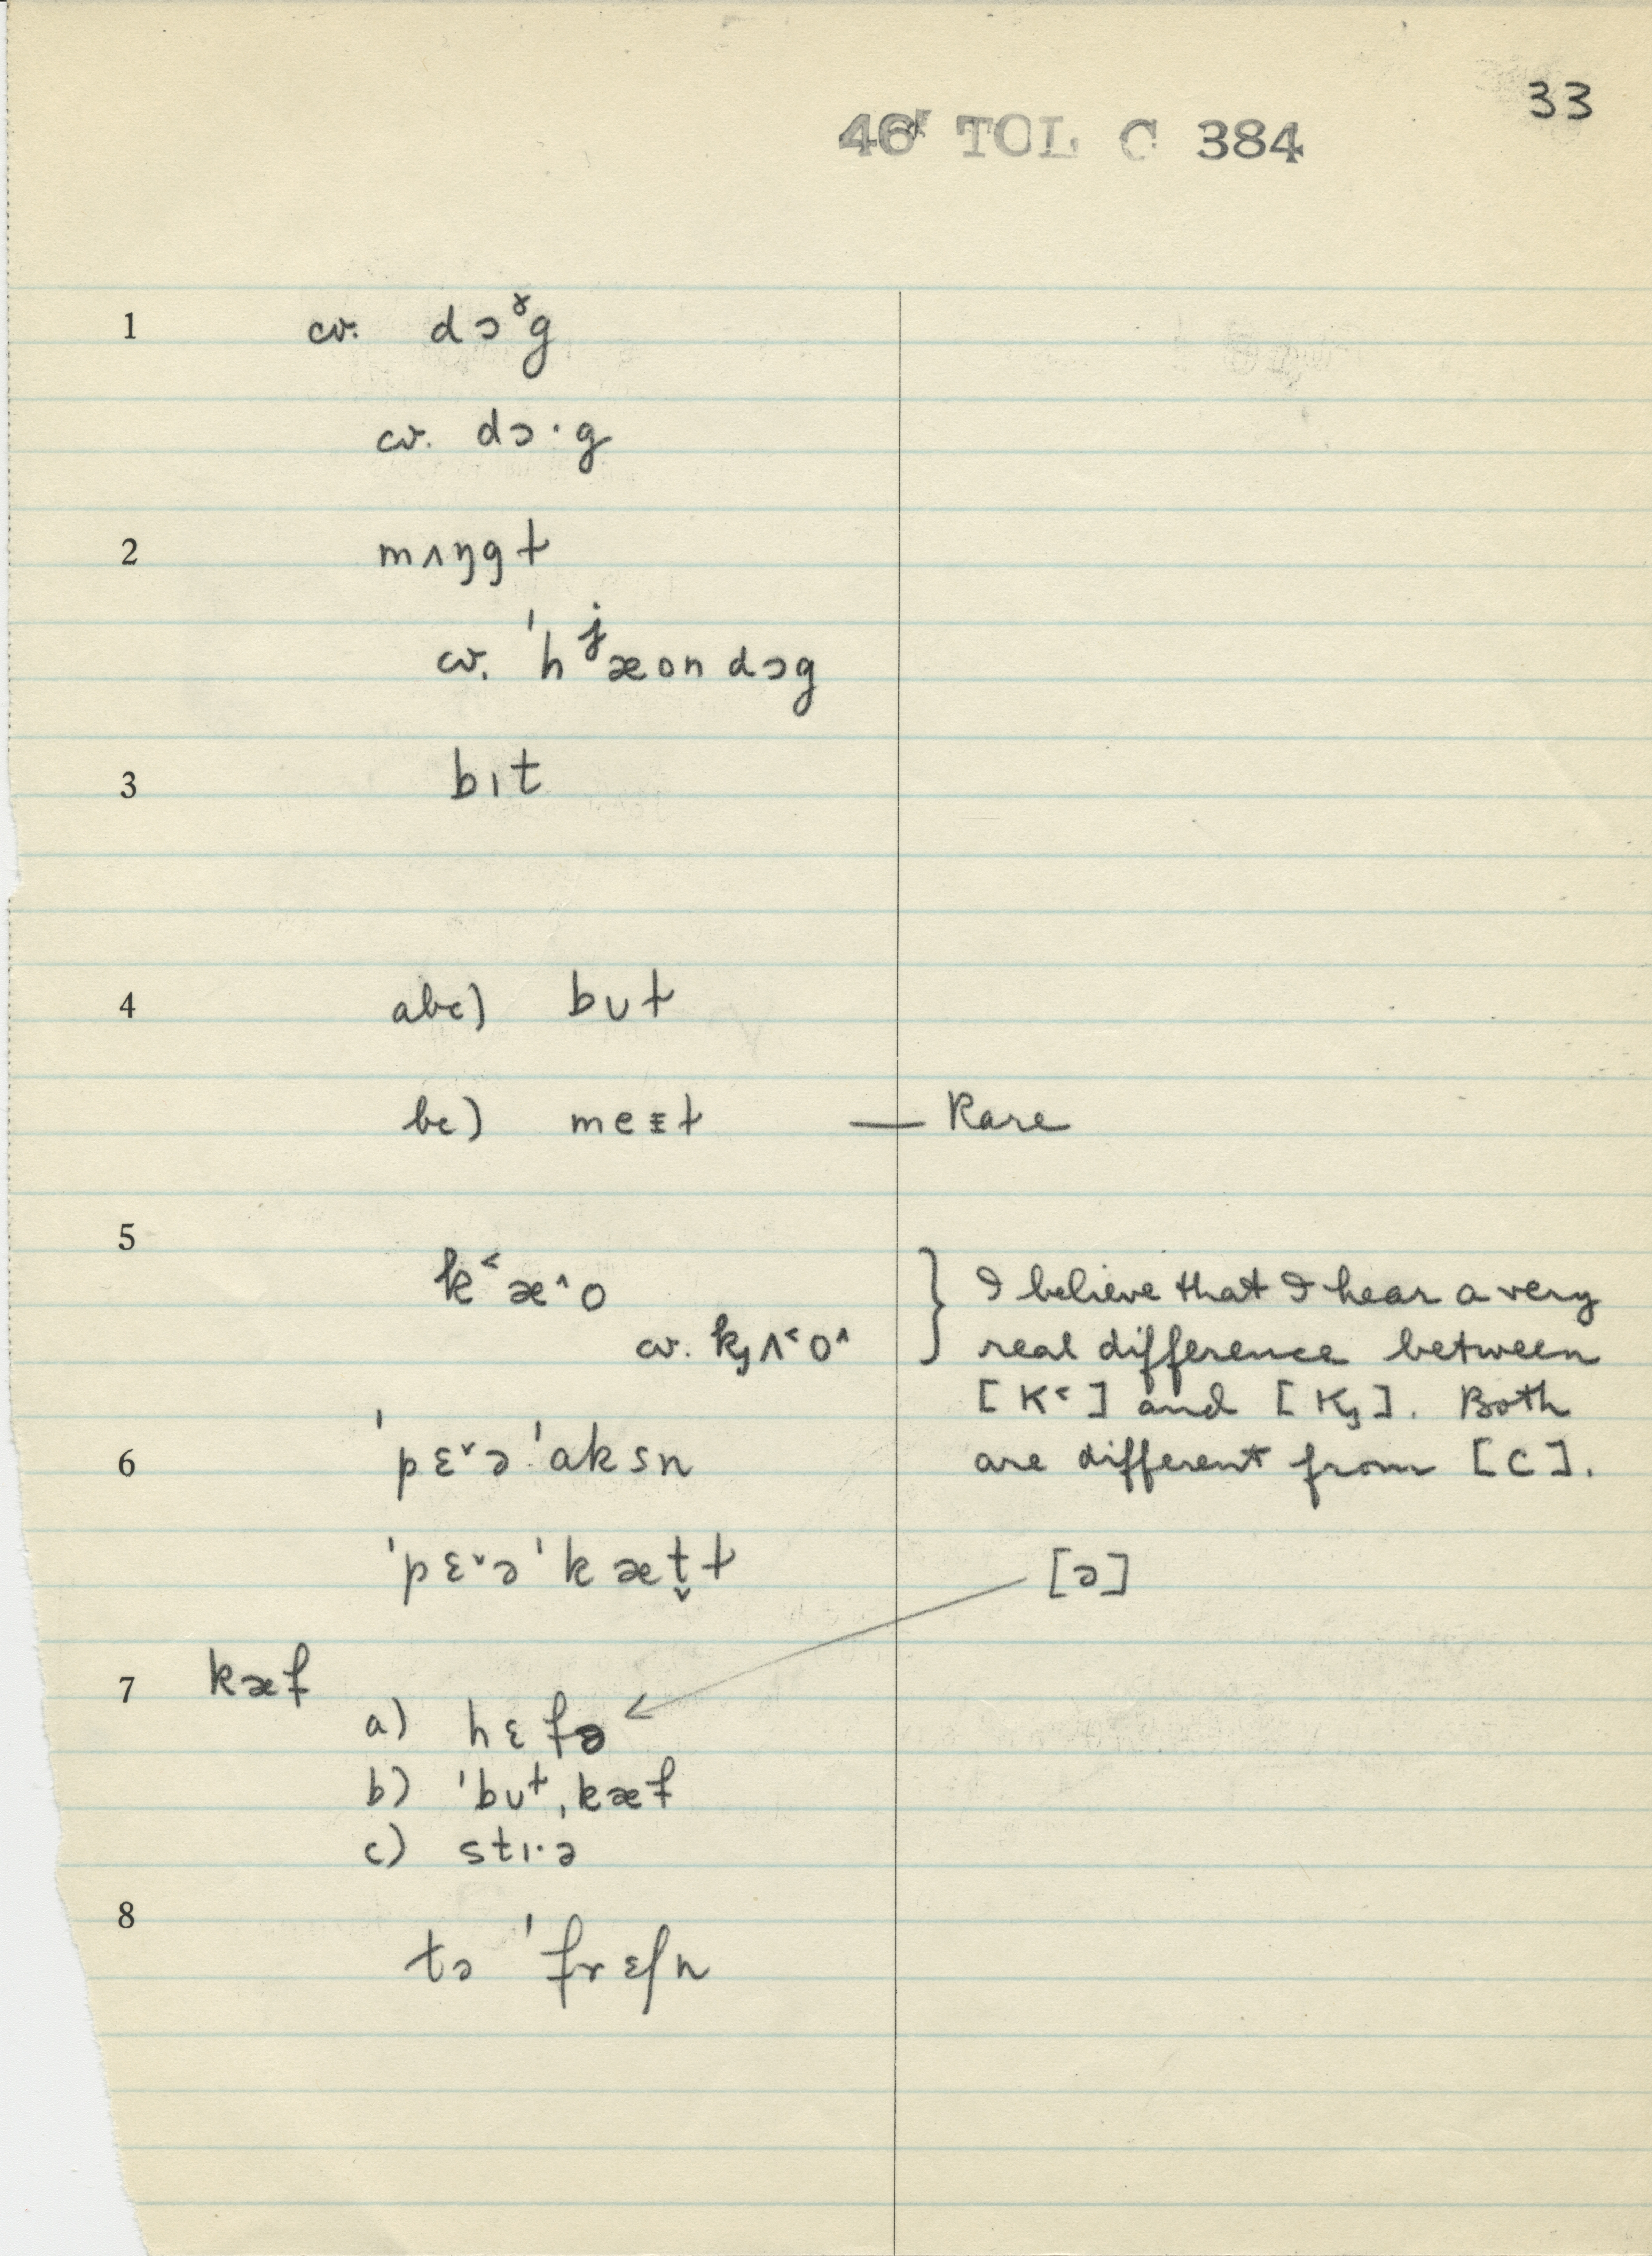 33
46 TOL C 384
1 cv. dɔˠg
cv. dɔ·g
2 mʌŋgɫ
cv. ˈhʲæon dɔg
3 bıt
4 abc) bʊɫ
bc) meɪɫ — Rare
5
k˂æ˄o
cv. kȷʌ˂o˄
} I believe that I hear a very
real difference between
[K˂] and [Kȷ]. Both
are different from [C].
6 ˈpɛ˅əˈaksn
ˈpɛ˅əˈkæt̬ɫ
[ə]
7 kæf
a) hɛfə
b) ˈbʊɫˌkæf
c) stı·ə
8
tə ˈfrɛʃn